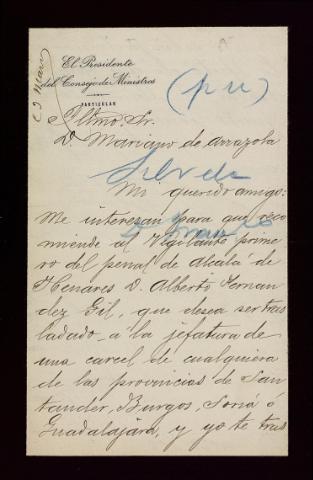 El Presidente
del Consejo de Ministros
PARTICULAR
(p u)
Iltmo. Sr.
D. Mariano de Arrazola
Silvela
Mi querido amigo:
Me interesan para que reco
miende al Vigilante prime
ro del penal de Alcalá de
Henares D. Alberto Fernan
dez Gil, que desea ser tras
ladado a la jefatura de
una carcel de cualquiera
de las provincias de San
tander, Burgos, Soria ó
Guadalajara, y yo te tras